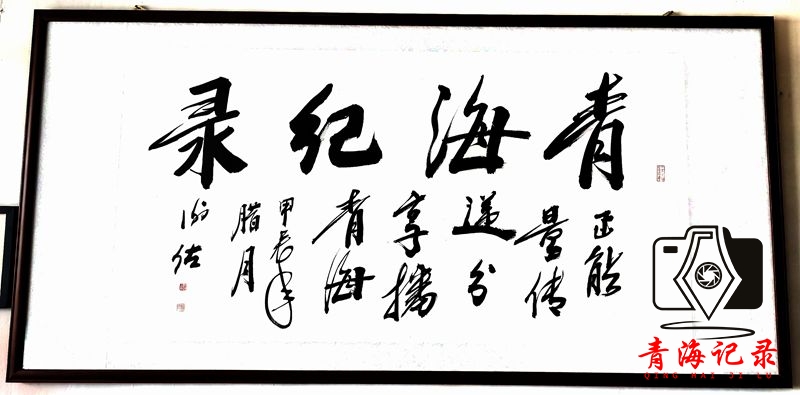 青海纪录
正能
量传
递分
享播
青海
甲辰年
腊月
青海记录
QING HAI JI LU